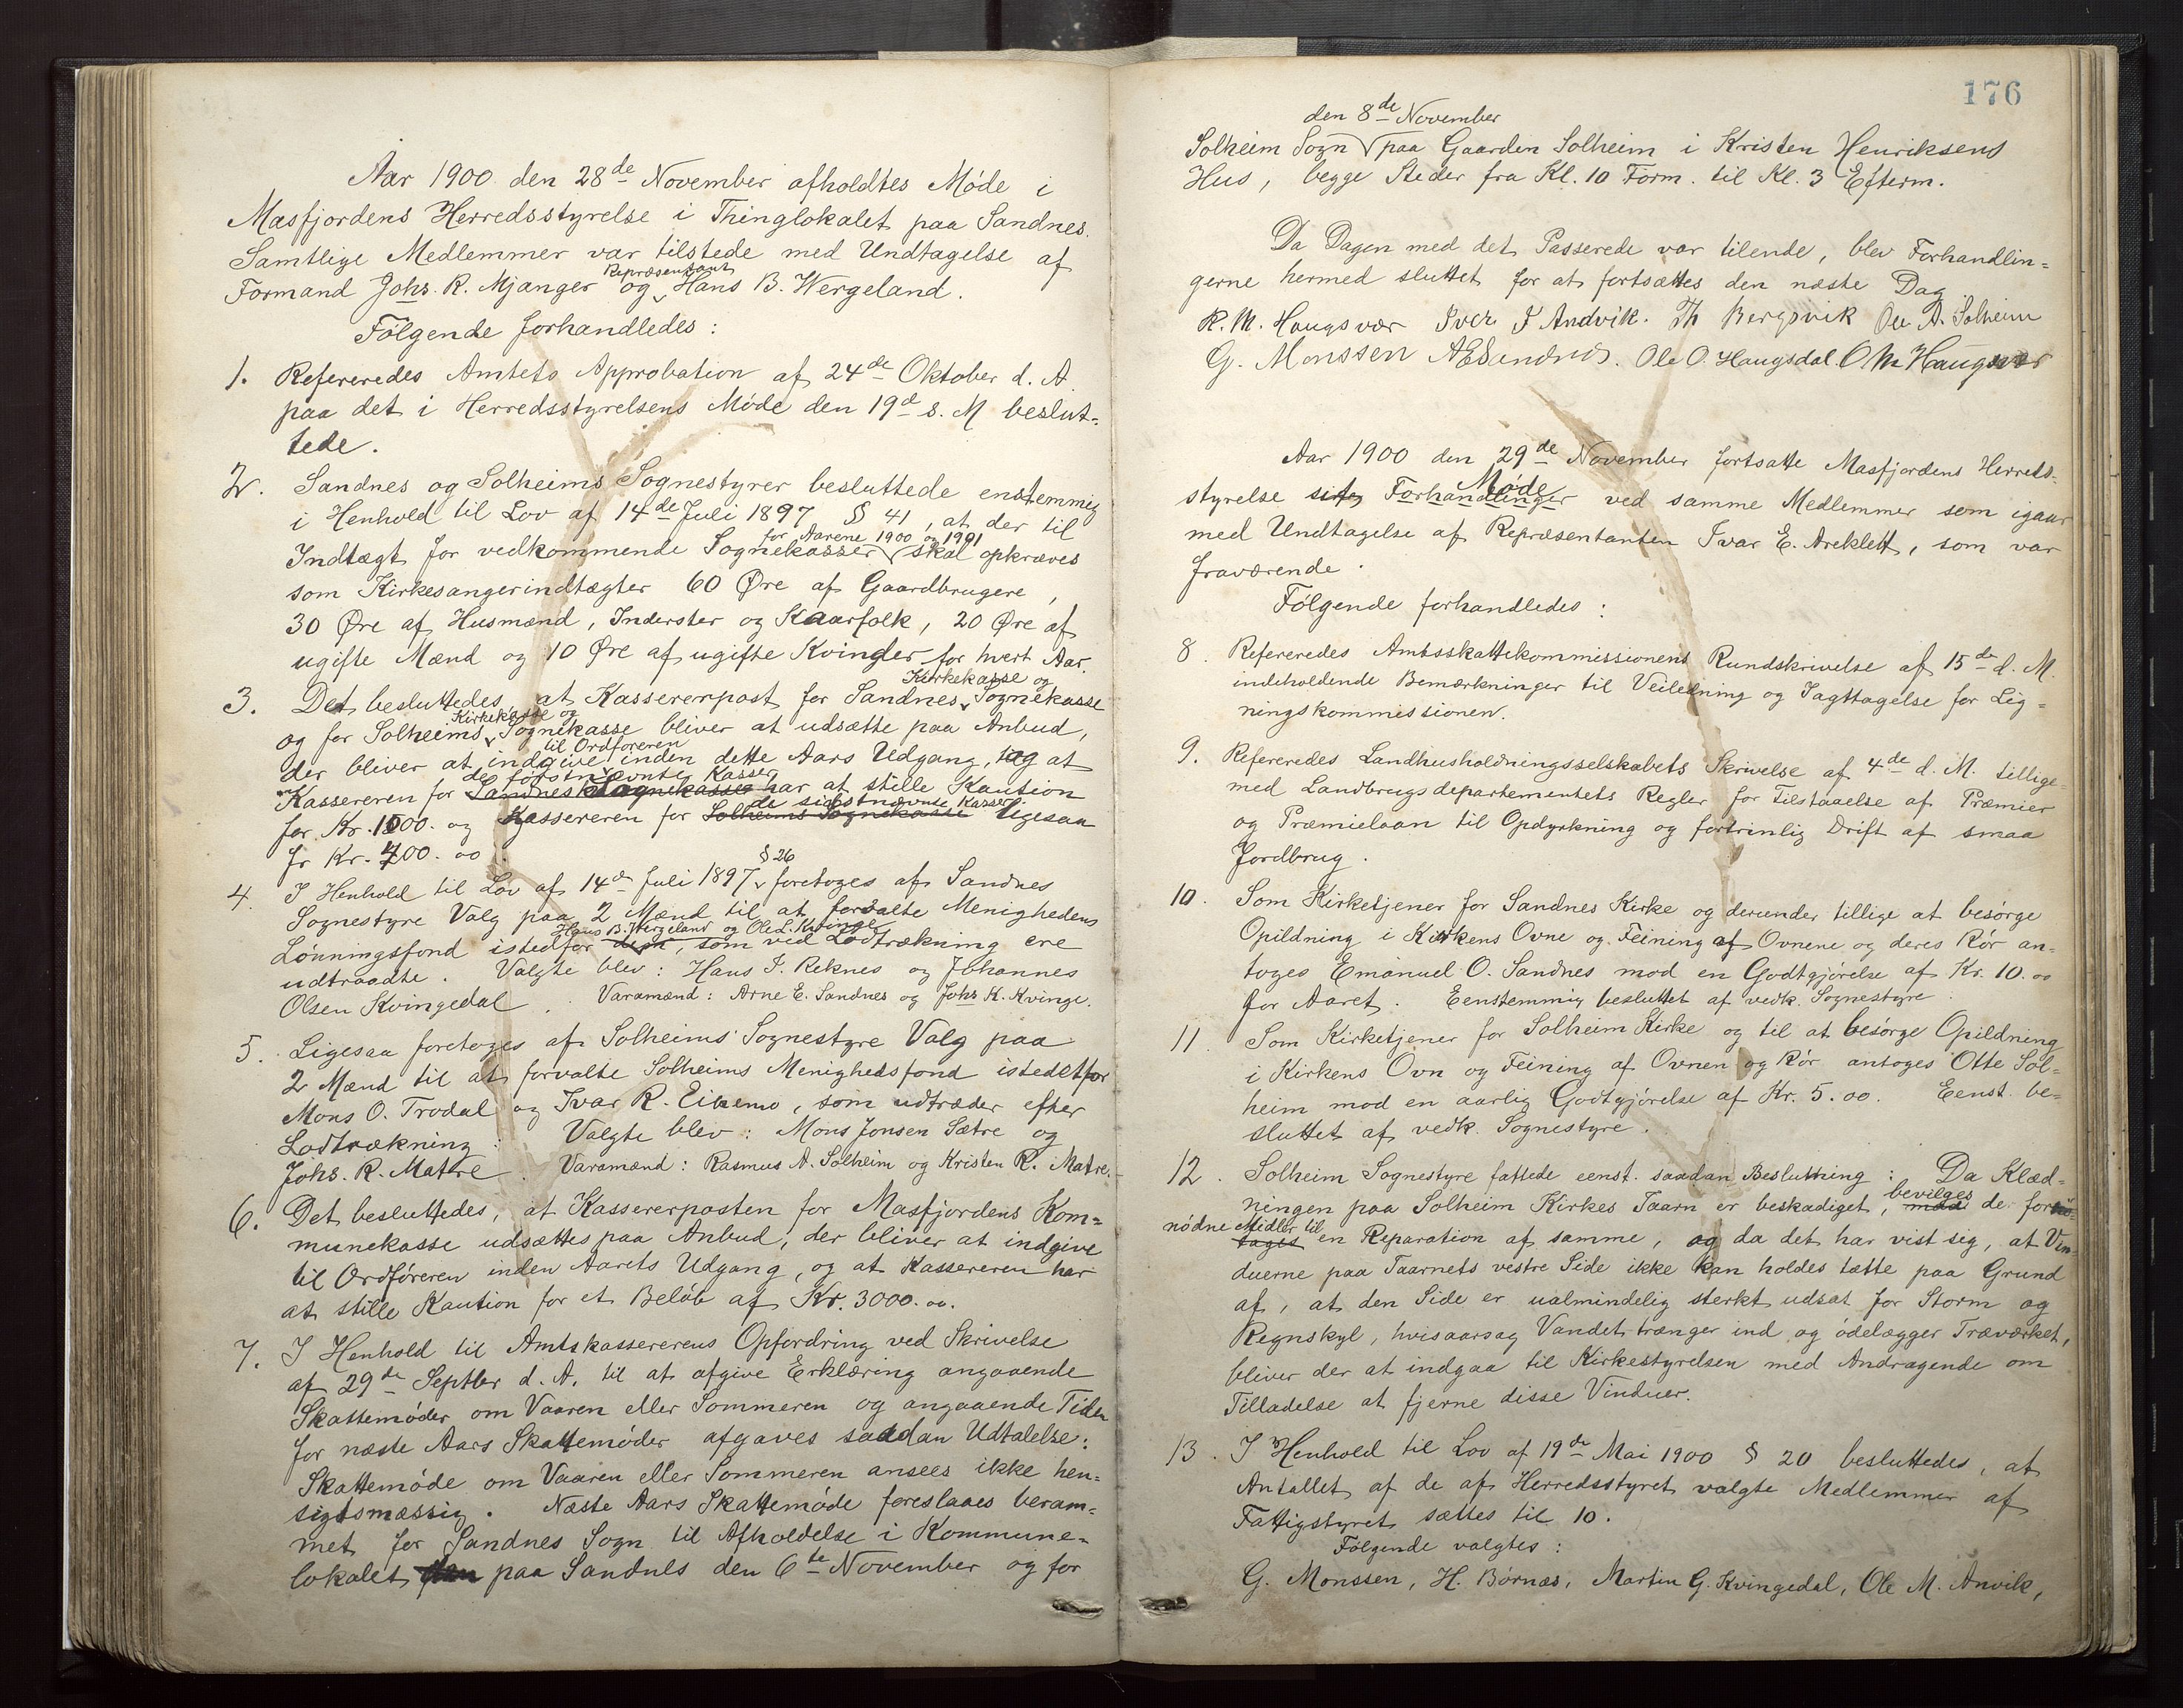 Aar 1900 den 28de November afholdtes Møde i
Masfjordens Herredsstyrelse i Thinglokalet paa Sandnes.
Samtlige Medlemmer var tilstede med Undtagelse af
Repræsentant
Formand Johs. R. Mjanger og Hans B. Wergeland.
Følgende forhandledes:
1. Refereredes Amtets Approbation af 24de Oktober d. A.
paa det i Herredsstyrelsens Møde den 19d s. M beslut-
tede.
2. Sandnes og Solheims Sognestyrer besluttede enstemmig
i Henhold til Lov af 14de Juli 1897 § 41, at der til
for Aarene 1900 og 1901
Indtægt for vedkommende Sognekasser skal opkræves
som Kirkesangerindtægter 60 Øre af Gaardbrugere,
30 Øre af Husmænd, Inderster og Kaarfolk, 20 Øre af
ugifte Mænd og 10 Øre af ugifte Kvinder for hvert Aar.
Kirkekasse og
3. Det besluttedes at Kassererpost for Sandnes Sognekasse
Kirkekasse og
og for Solheims Sognekasse bliver at udsætte paa Anbud,
til Ordføreren
der bliver at indgive inden dette Aars Udgang, og at
de førstnævnte Kasser
Kassereren for Sandnes Sognekasse har at stille Kaution
de sidstnævnte Kasser
for Kr. 1000. og Kassereren for Solheims Sognekasse ligesaa
fr Kr. 700. 00.
§ 26
4. I Henhold til Lov af 14de Juli 1897 foretoges af Sandnes
Sognestyre Valg paa 2 Mænd til at forvalte Menighedens
Hans B. Wergeland og Ole L. Kvinge
Lønningsfond istedfor dem, som ved Lodtrækning ere
udtraadte. Valgte blev: Hans J. Reknes og Johannes
Olsen Kvingedal. Varamænd: Arne E. Sandnes og Johs K. Kvinge.
5. Ligesaa foretoges af Solheims Sognestyre Valg paa
2 Mænd til at forvalte Solheims Menighedsfond istedetfor
Mons O. Trodal og Ivar R. Eikemo, som udtræder efter
Lodtrækning: Valgte blev: Mons Jonsen Sætre og
Johs. R. Matre. Varamænd: Rasmus A. Solheim og Kristen R. Matre.
6. Det besluttedes, at Kassererposten for Masfjordens Kom-
munekasse udsættes paa Anbud, der bliver at indgive
til Ordføreren inden Aarets Udgang, og at Kassereren har
at stille Kaution for et Beløb af Kr. 3000. 00.
7. I Henhold til Amtskassererens Opfordring ved Skrivelse
af 29de Septbr d. A. til at afgive Erklæring angaaende
Skattemøder om Vaaren eller Sommeren og angaaende Tiden
for næste Aars Skattemøder afgaves saadan Udtalelse:
Skattemøde om Vaaren eller Sommeren ansees ikke hen-
sigtsmæssig. Næste Aars Skattemøde foreslaaes beram-
met for Sandnes Sogn til Afholdelse i Kommune-
lokalet paa Sandnes den 6te November og for
176
den 8de November
Solheim Sogn paa Gaarden Solheim i Kristen Henriksens
Hus, begge Steder fra Kl. 10 Form. til Kl. 3 Efterm.
Da Dagen med det Passerede var tilende, blev Forhandlin-
gerne hermed sluttet for at fortsættes den næste Dag.
R. M. Haugsvær Iver J Andvik. Th Bergsvik Ole A. Solheim
G. Monssen A E Sandnes. Ole O. Haugsdal. O M Haugsvær
Aar 1900 den 29de November fortsatte Masfjordens Herreds-
Møde
styrelse sine Forhandlinger ved samme Medlemmer som igaar
med Undtagelse af Repræsentanten Ivar E. Areklett, som var
fraværende.
Følgende forhandledes:
8. Refereredes Amtsskattekommissionens Rundskrivelse af 15de d. M.
indeholdende Bemærkninger til Veiledning og Iagttagelse for Lig-
ningskommissionen.
9. Refereredes Landhusholdningsselskabets Skrivelse af 4de d. M. tillige-
med Landbrugsdepartementets Regler for Tilstaaelse af Præmier
og Præmielaan til Opdyrkning og fortrinlig Drift af smaa
Jordbrug.
10. Som Kirketjener for Sandnes Kirke og derunder tillige at besørge
Opildning i Kirkens Ovne og Feining af Ovnene og deres Rør an-
toges Emanuel O. Sandnes mod en Godtgjørelse af Kr. 10. 00
for Aaret. Eenstemmig besluttet af vedk. Sognestyre.
11 Som Kirketjener for Solheim Kirke og til at besørge Opildning
i Kirkens Ovn og Feining af Ovnen og Rør antoges Otte Sol-
heim mod en aarlig Godtgjørelse af Kr. 5. 00. Eenst. be-
sluttet af vedk. Sognestyre.
12. Solheim Sognestyre fattede eenst. saadan Beslutning: Da Klæd-
bevilges
ningen paa Solheim Kirkes Taarn er beskadiget, maa de fornø-
nødne Midler til
tages en Reparation af samme, og da det har vist seg, at Vin-
duerne paa Taarnets vestre Side ikke kan holdes tætte paa Grund
af, at den Side er ualmindelig sterkt udsat for Storm og
Regnskyl, hvisaarsag Vandet trænger ind og ødelægger Træværket,
bliver der at indgaa til Kirkestyrelsen med Andragende om
Tilladelse at fjerne disse Vinduer.
13. I Henhold til Lov af 19de Mai 1900 § 20 besluttedes, at
Antallet af de af Herredsstyret valgte Medlemmer af
Fattigstyret sættes til 10.
Følgende valgtes:
G. Monssen, H. Børnæs, Martin G. Kvingedal, Ole M. Anvik,